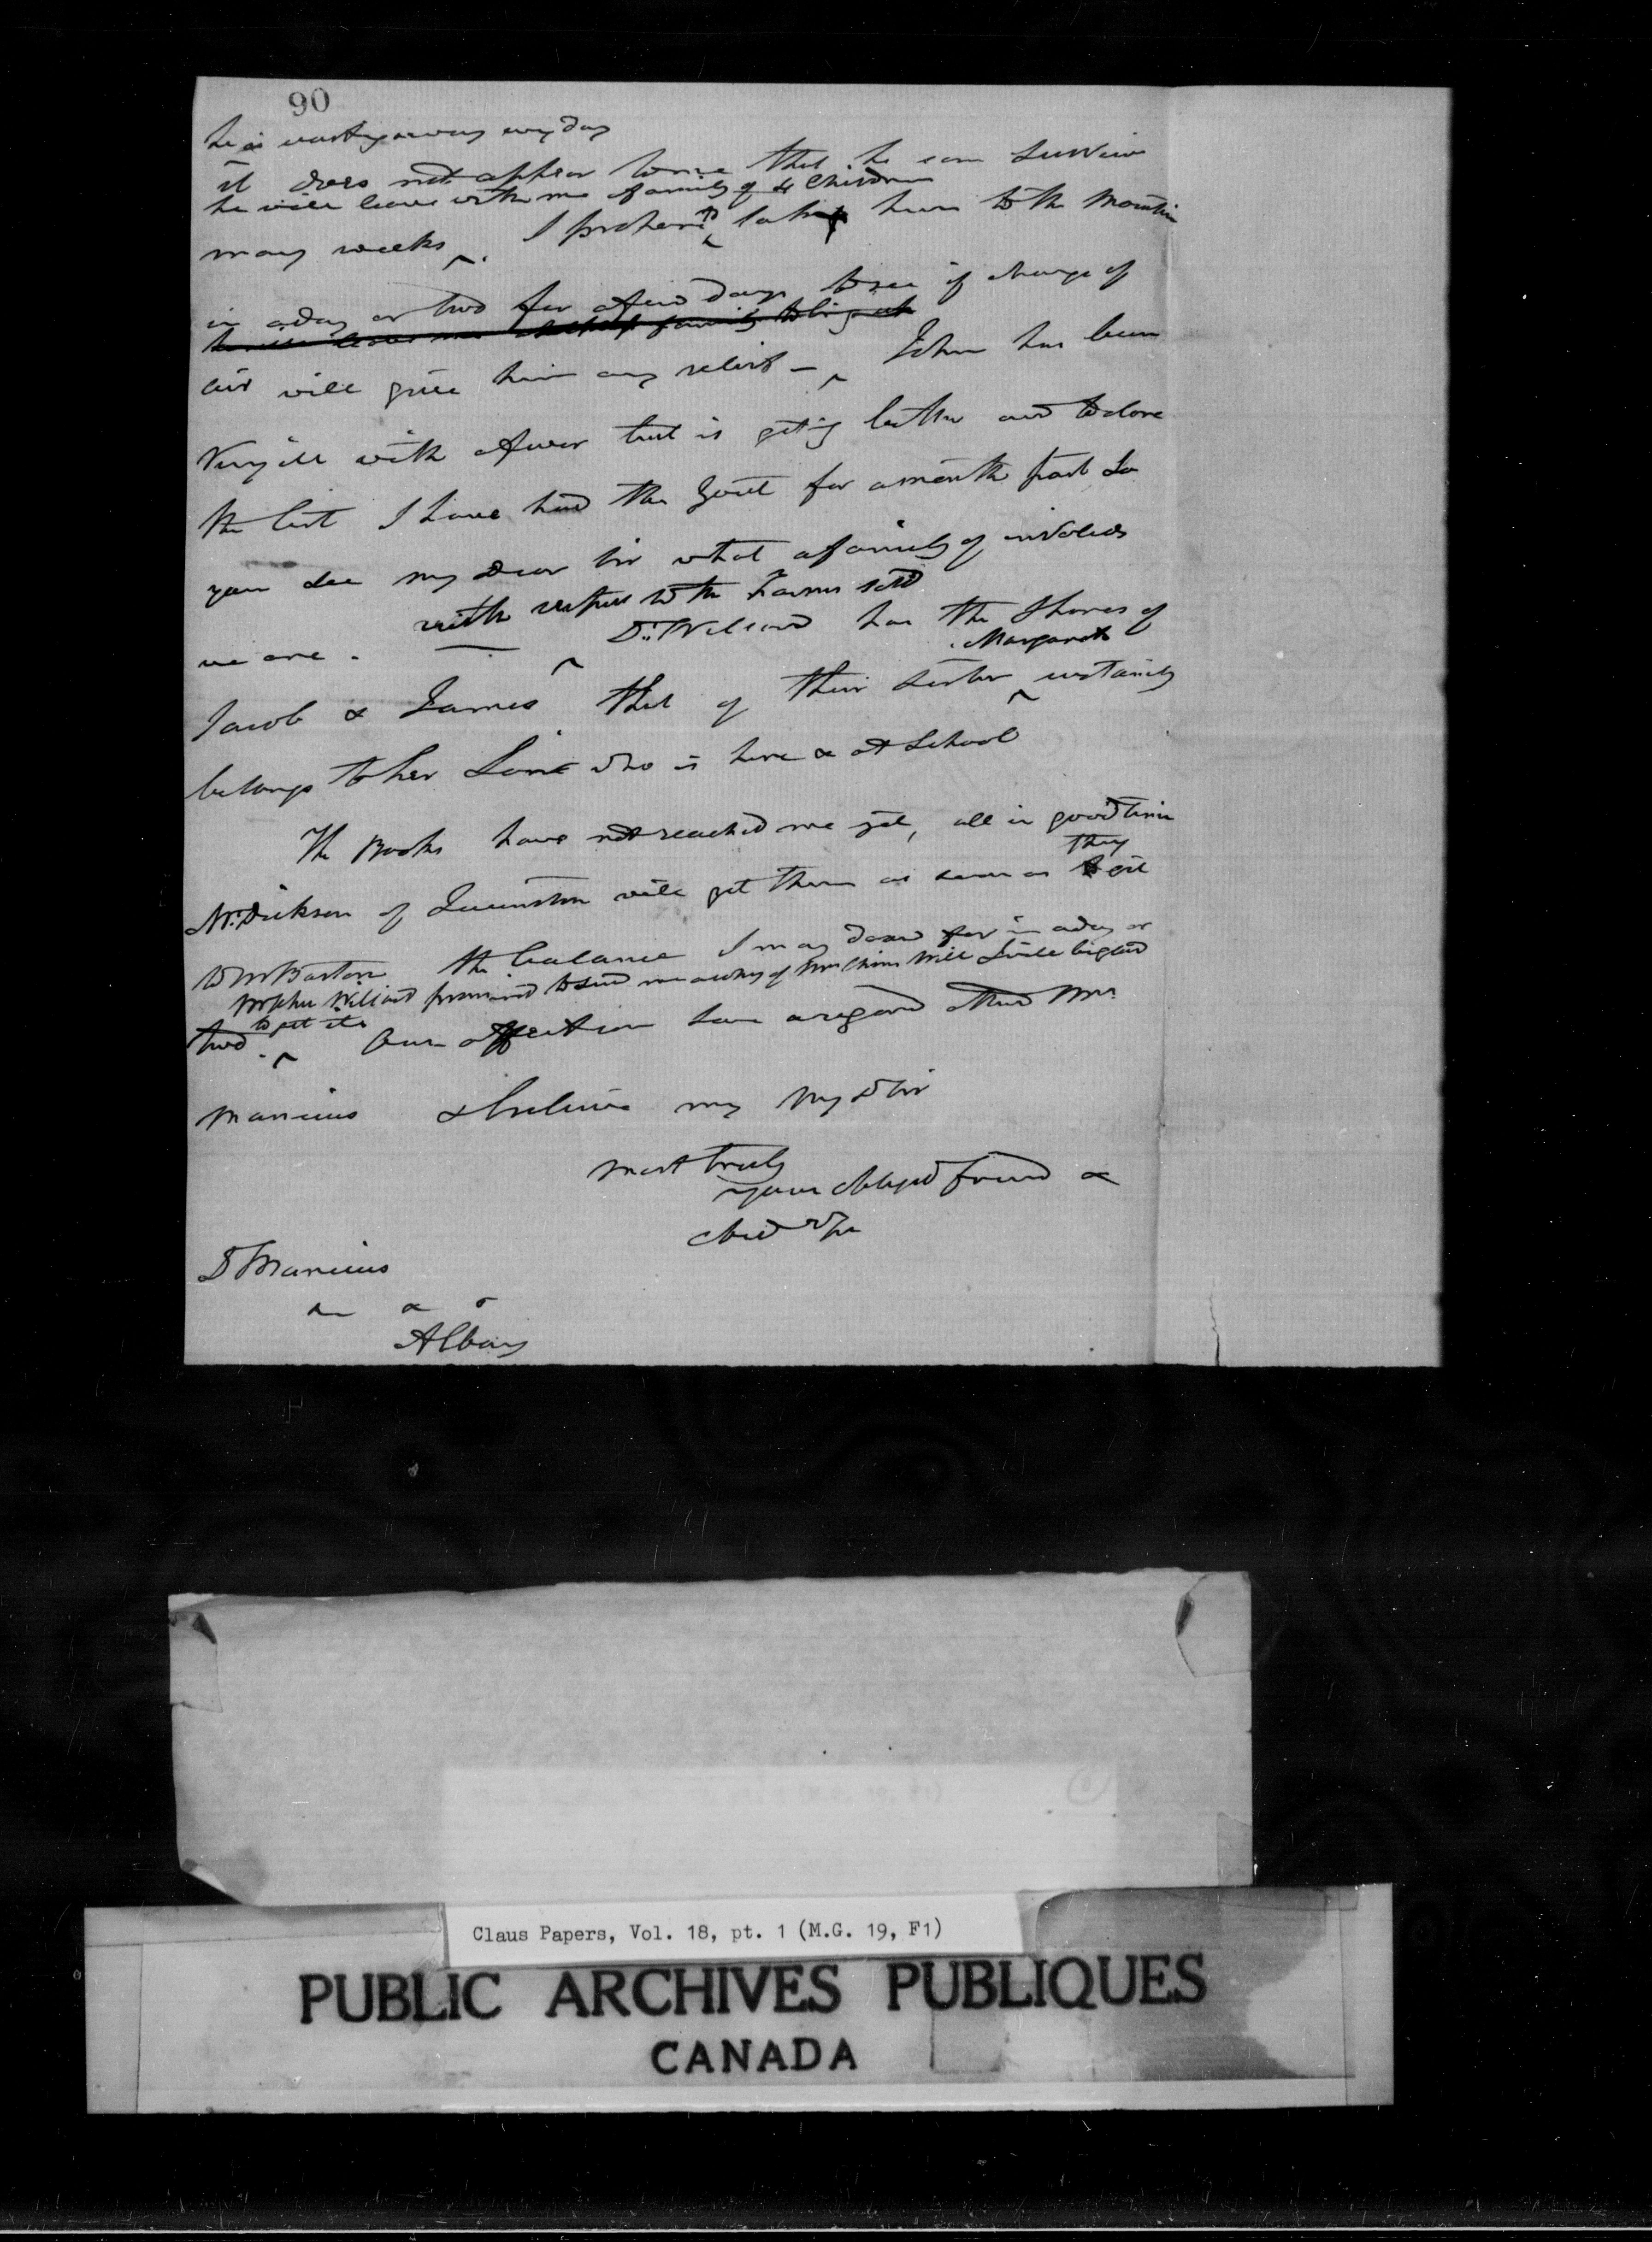 90
he is wasting away every day
it does not appear to me that he can survive
he will leave with me a family of 4 Children
many weeks. I to take him to the Mountain
in a day or two for a few days to see if change of
air will give him any relief - John has been
Very ill with a fever but is geting better and to close
the list I have had the Gout for a month past So
you see my Dear Sir what a family of invalids
with respect to the Farms sold
we are. Dr. Willard has the Shares of
Margaret
Jacob & James that of their Sister certainly
belongs to her Son who is here & at School
The Books have not reached me yet, all in good time
they
Mr. Dickson of Queenston will get them as soon as get
to Mr Barton the balance I may draw for in a day or
Mr John Willard promised to send me a copy of Will
to get it
two. Our affection love & regard attend Mrs.
Mancius & believe my My D Sir
most truly
your obliged friend &
D Mancius
& & &
Albany
Claus Papers, Vol. 18, pt. 1 (M.G. 19, F1)
PUBLIC ARCHIVES PUBLIQUES
CANADA